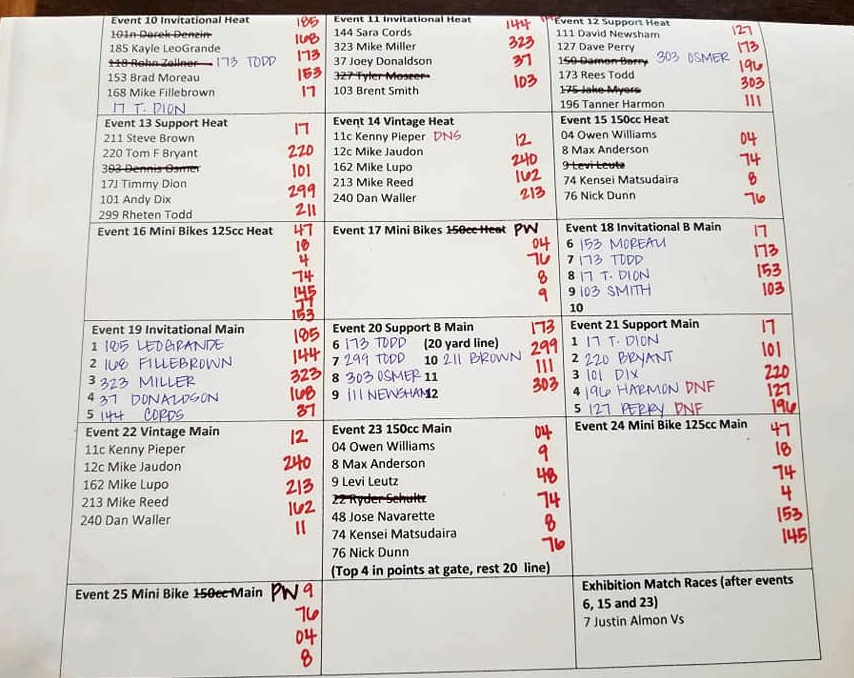 Event 10 Invitational Heat 185
101n Derek Denzin 168
185 Kayle LeoGrande 173
118 Rohn Zellner 173 TODD 153
153 Brad Moreau 17
168 Mike Fillebrown
17 T. DION
Event 11 Invitational Heat 144
144 Sara Cords 323
323 Mike Miller 37
37 Joey Donaldson 103
327 Tyler Moszer
103 Brent Smith
Event 12 Support Heat 127
111 David Newsham 173
127 Dave Perry 196
150 Damon Barry 303 OSMER 303
173 Rees Todd 111
175 Jake Myers
196 Tanner Harmon
Event 13 Support Heat 17
211 Steve Brown 220
220 Tom F Bryant 101
303 Dennis Osmer 299
17J Timmy Dion 211
101 Andy Dix
299 Rheten Todd
Event 14 Vintage Heat
11c Kenny Pieper DNS 12
12c Mike Jaudon 240
162 Mike Lupo 162
213 Mike Reed 213
240 Dan Waller
Event 15 150cc Heat
04 Owen Williams 04
8 Max Anderson 74
9 Levi Leutz 8
74 Kensei Matsudaira 76
76 Nick Dunn
Event 16 Mini Bikes 125cc Heat 47
18
4
74
145
77
153
Event 17 Mini Bikes 150cc Heat PW
04
76
8
9
Event 18 Invitational B Main 17
6 153 MOREAU 173
7 173 TODD 153
8 17 T. DION 103
9 103 SMITH
10
Event 19 Invitational Main 185
1 185 LEOGRANDE 144
2 168 FILLEBROWN 323
3 323 MILLER 168
4 37 DONALDSON 37
5 144 CORDS
Event 20 Support B Main 173
6 173 TODD (20 yard line) 299
7 299 TODD 10 211 BROWN 111
8 303 OSMER 11 303
9 111 NEWSHAM 12
Event 21 Support Main 17
1 17 T. DION 101
2 220 BRYANT 220
3 101 DIX 127
4 196 HARMON DNF 196
5 127 PERRY DNF
Event 22 Vintage Main 12
11c Kenny Pieper 240
12c Mike Jaudon 213
162 Mike Lupo 162
213 Mike Reed 11
240 Dan Waller
Event 23 150cc Main 04
04 Owen Williams 9
8 Max Anderson 48
9 Levi Leutz 74
22 Ryder Schultz 8
48 Jose Navarette 76
74 Kensei Matsudaira
76 Nick Dunn
(Top 4 in points at gate, rest 20 line)
Event 24 Mini Bike 125cc Main 47
18
74
4
153
145
Event 25 Mini Bike 150cc Main PW 9
76
04
8
Exhibition Match Races (after events
6, 15 and 23)
7 Justin Almon Vs